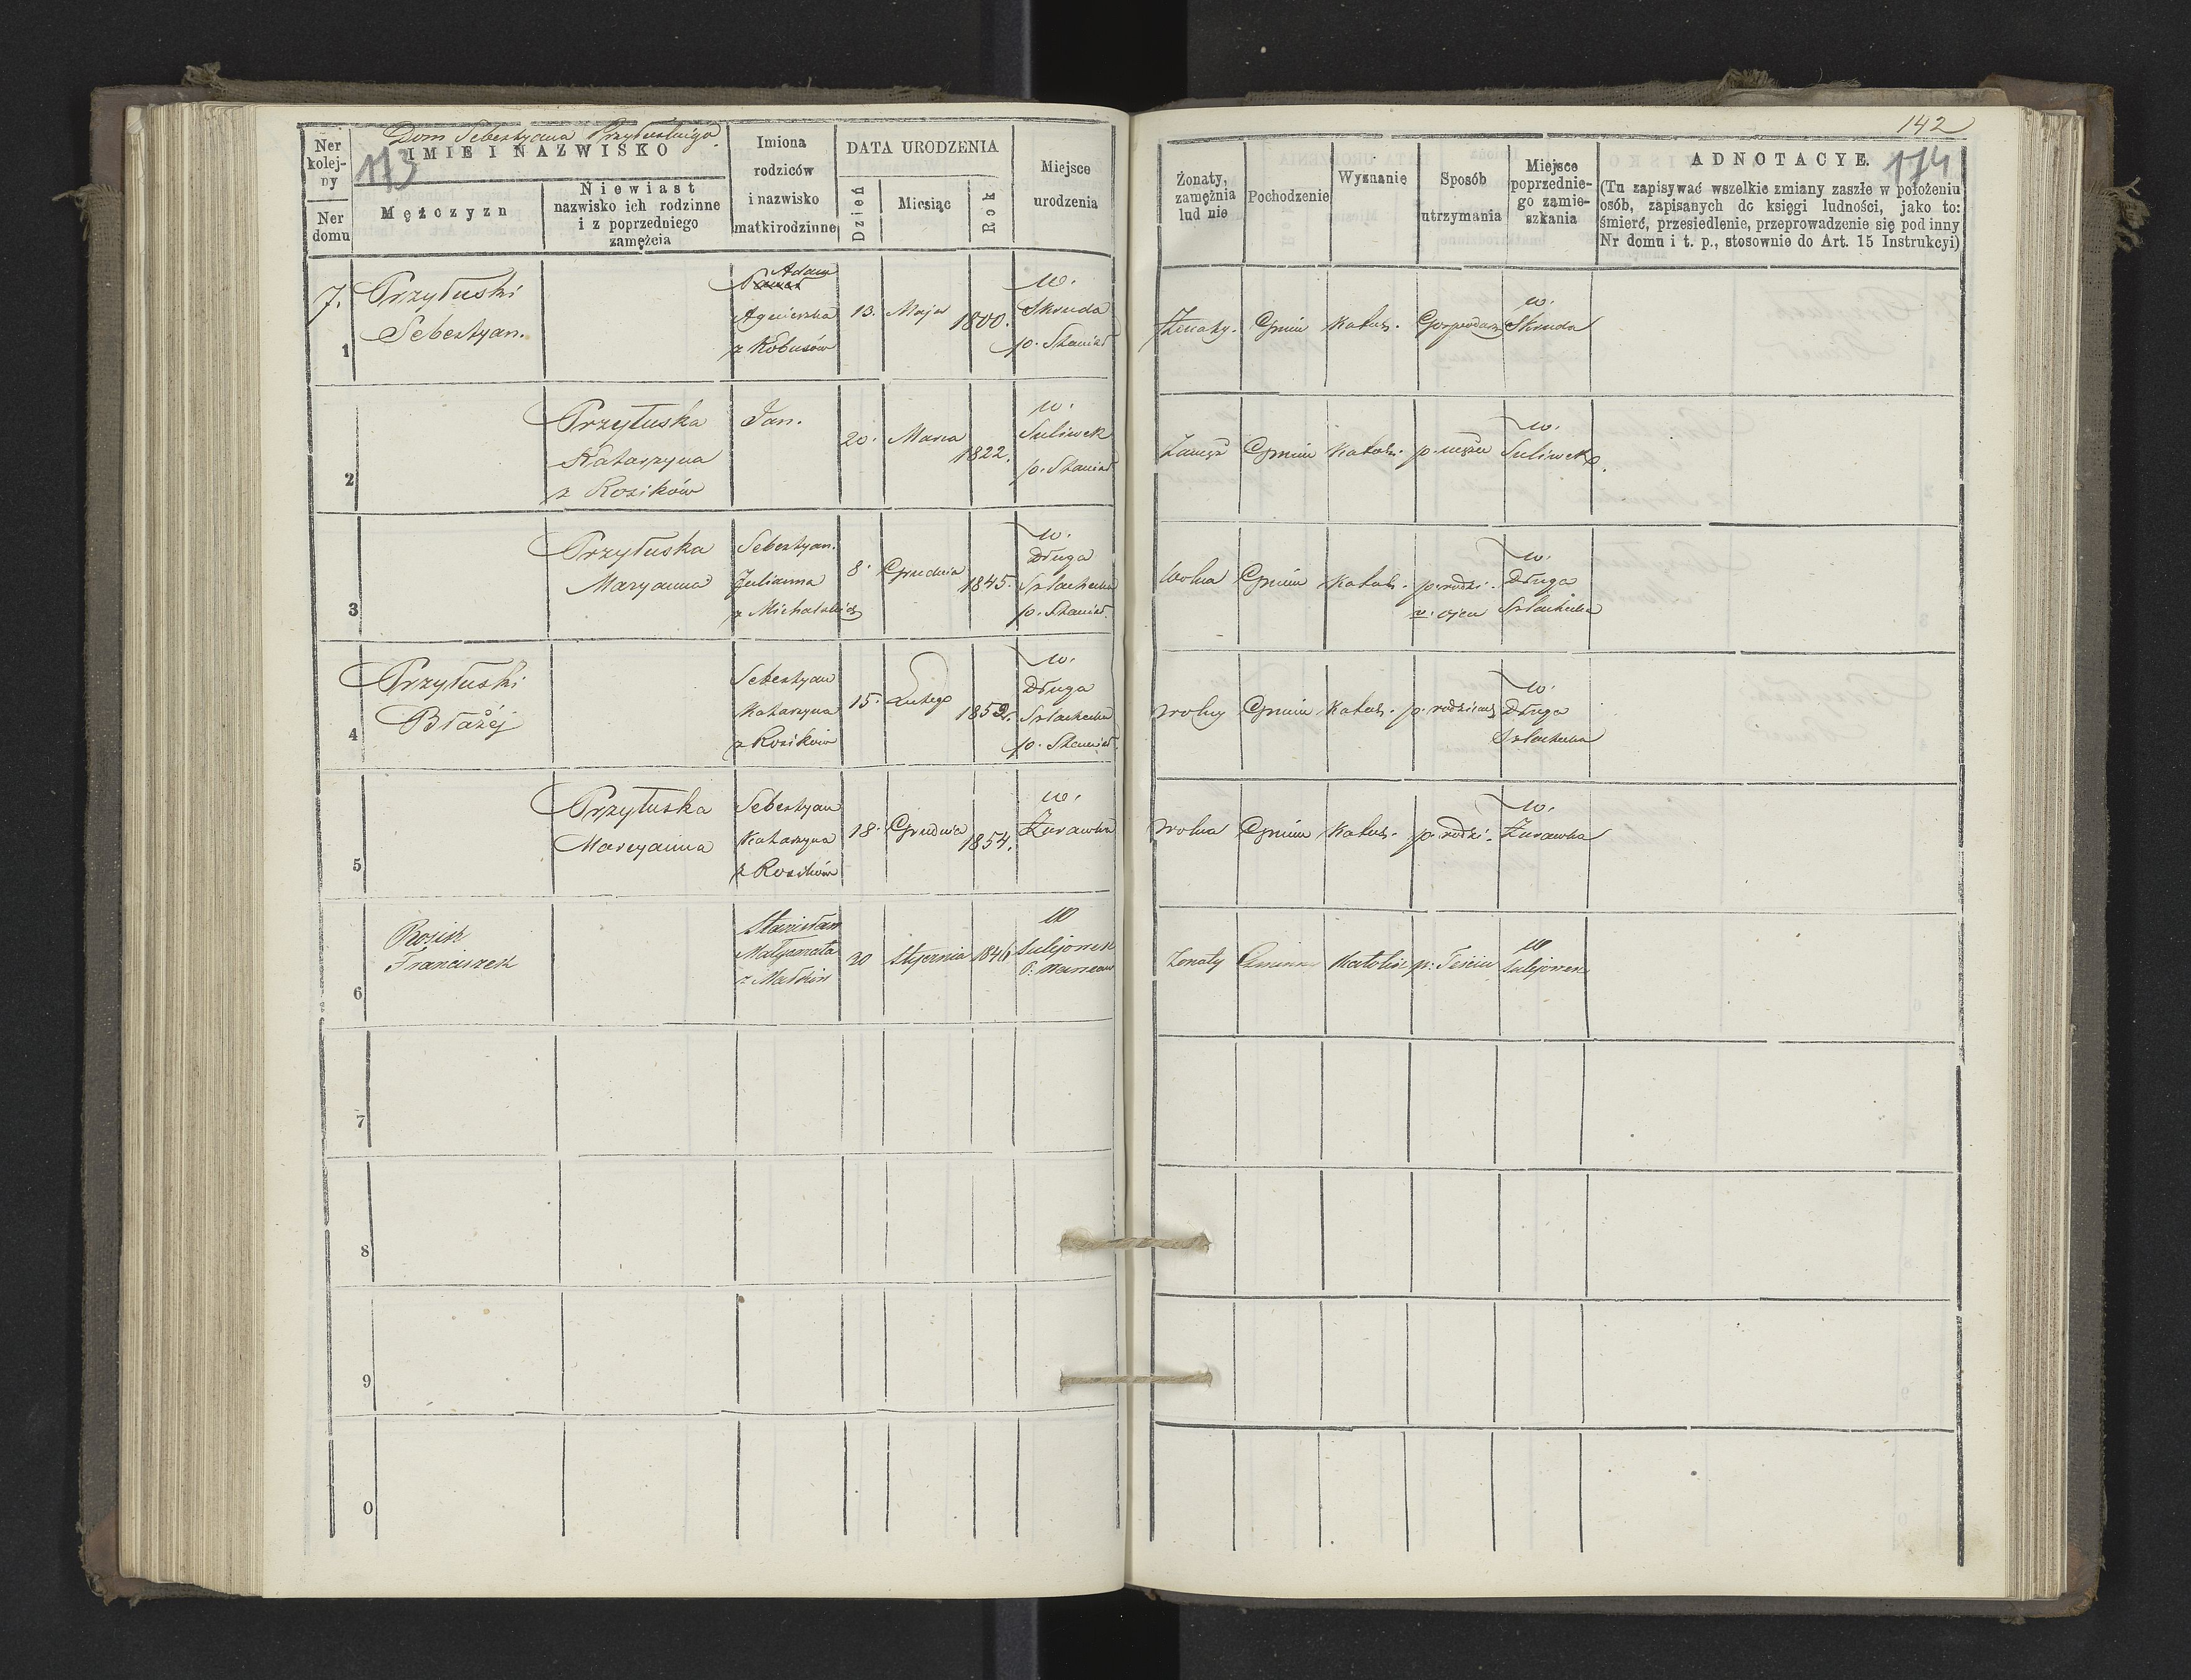 Dom Sebestyana Przyłuskiego.
173
Ner kolejny
Ner domu
IMIE I NAZWISKO
Mężczyzn
Niewiast
nazwisko ich rodzinne
i z poprzedniego
zamężcia
Imiona
rodziców
i nazwisko
matki rodzinne
DATA URODZENIA
Dzień
Miesiąc
Rok
Miejsce
urodzenia
7.
1
Przyłuski
Sebestyan.
Adam
Agnieszka
z Kobusów
13.
Maja
1800.
w.
Skruda
p. Stanisł
2
Przyłuska
Katarzyna
z Rosików
Jan.
20.
Marca
1822.
w.
Suliwek
p. Stanisł
3
Przyłuska
Maryanna
Sebestyan.
Julianna
z Michalskich
8.
Grudnia
1845.
w.
Długa
Szlachecka
p. Stanisł.
4
Przyłuski
Błażéj
Sebestyan
Katarzyna
z Rosików
15.
Lutego
1852.
w.
Długa
Szlachecka
p. Stanisł.
5
Przyłuska
Maryanna
Sebestyan
Katarzyna
z Rosików
18.
Grudnia
1854.
w.
Żurawka
6
Rosik
Franciszek
Stanisław
Małgorzata
z Małków
20
Stycznia
1846
w
Sulejowek
P. Warszaw
7
8
9
0
142
174
Żonaty,
zamężnia
lud nie
Pochodzenie
Wyznanie
Sposób
utrzymania
Miejsce
poprzednie-
go zamie-
szkania
ADNOTACYE.
(Tu zapisywać wszelkie zmiany zaszłe w położeniu
osób, zapisanych do księgi ludności, jako to:
śmierć, przesiedlenie, przeprowadzenie się pod inny
Nr domu i t. p., stosownie do Art. 15 Instrukcyi)
Żonaty.
Gmin
Katol.
Gospodarz
w.
Skruda
Zamęż
Gmin
Katol.
p. mężu
w.
Suliwek
Wolna
Gmin
Katol.
p. rodzi.
v. ojcu
w.
Długa
Szlachecka
Wolny
Gmin
Katol.
p. rodzicach
w.
Długa
Szlachecka
Wolna
Gmin
Katol.
p. rodzi.
w.
Żurawka
Żonaty
Katolic
p. Teściu
w
Sulejowek